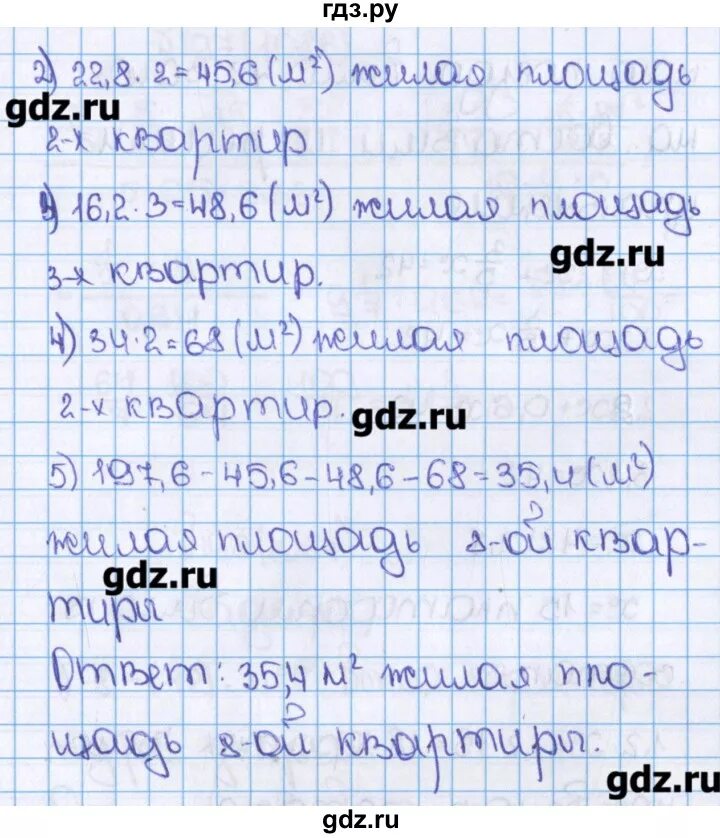 гдз.ру
2) 22,8 · 2 = 45,6 (м²) жилая площадь
gdz.ru
2-х квартир
3) 16,2 · 3 = 48,6 (м²) жилая площадь
gdz.ru
3-х квартир.
4) 34 · 2 = 68 (м²) жилая площадь
2-х квартир.
gdz.ru
5) 197,6 - 45,6 - 48,6 - 68 = 35,4 (м²)
жилая площадь 8-ой квар-
gdz.ru
тиры
Ответ: 35,4 м² жилая пло-
щадь 8-ой квартиры.
gdz.ru
gdz.ru